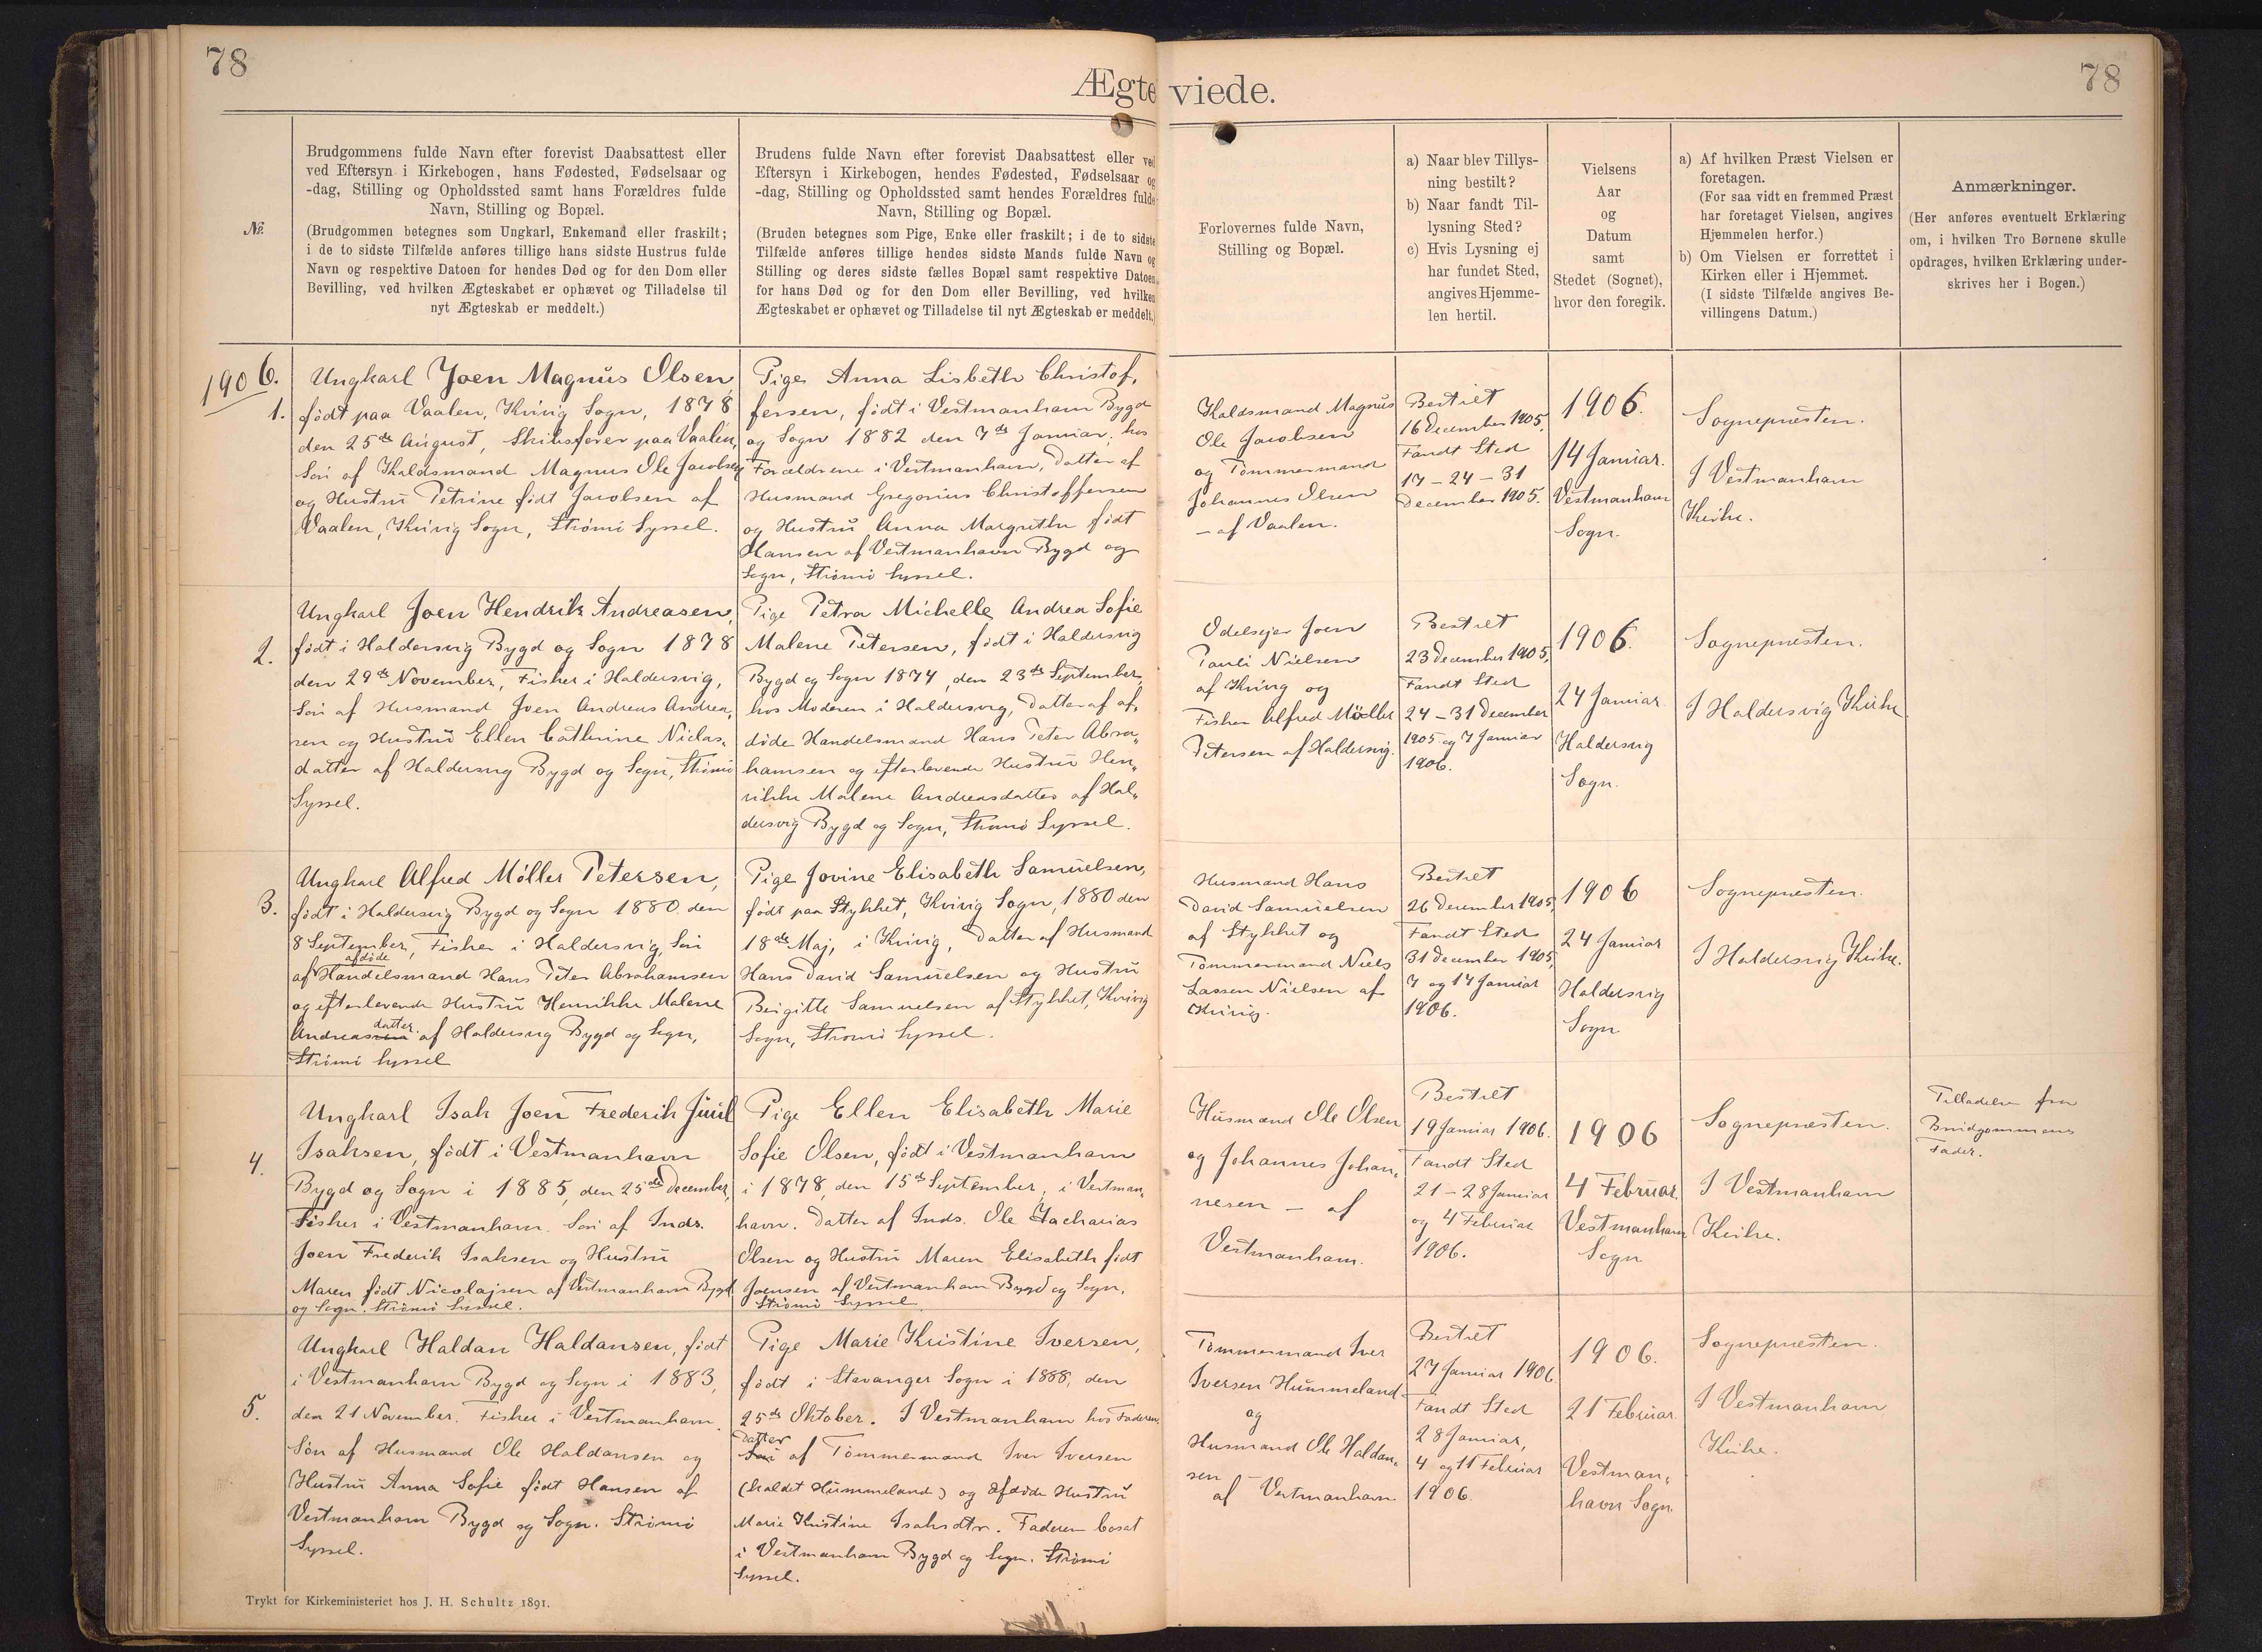 78
78
Ægteviede.
№
Brudgommens fulde Navn efter forevist Daabsattest eller
ved Eftersyn i Kirkebogen, hans Fødested, Fødselsaar og
-dag, Stilling og Opholdssted samt hans Forældres fulde
Navn, Stilling og Bopæl.
(Brudgommen betegnes som Ungkarl, Enkemand eller fraskilt;
i de to sidste Tilfælde anføres tillige hans sidste Hustrus fulde
Navn og respektive Datoen for hendes Død og for den Dom eller
Bevilling, ved hvilken Ægteskabet er ophævet og Tilladelse til
nyt Ægteskab er meddelt.)
Brudens fulde Navn efter forevist Daabsattest eller ved
Eftersyn i Kirkebogen, hendes Fødested, Fødselsaar og
-dag, Stilling og Opholdssted samt hendes Forældres fulde
Navn, Stilling og Bopæl.
(Bruden betegnes som Pige, Enke eller fraskilt; i de to sidste
Tilfælde anføres tillige hendes sidste Mands fulde Navn og
Stilling og deres sidste fælles Bopæl samt respektive Datoen
for hans Død og for den Dom eller Bevilling, ved hvilken
Ægteskabet er ophævet og Tilladelse til nyt Ægteskab er meddelt.)
Forlovernes fulde Navn,
Stilling og Bopæl.
a) Naar blev Tillys-
ning bestilt?
b) Naar fandt Til-
lysning Sted?
c) Hvis Lysning ej
har fundet Sted,
angives Hjemme-
len hertil.
Vielsens
Aar
og
Datum
samt
Stedet (Sognet),
hvor den foregik.
a) Af hvilken Præst Vielsen er
foretagen.
(For saa vidt en fremmed Præst
har foretaget Vielsen, angives
Hjemmelen herfor.)
b) Om Vielsen er forrettet i
Kirken eller i Hjemmet.
(I sidste Tilfælde angives Be-
villingens Datum.)
Anmærkninger.
(Her anføres eventuelt Erklæring
om, i hvilken Tro Børnene skulle
opdrages, hvilken Erklæring under-
skrives her i Bogen.)
1906.
1.
Ungkarl Joen Magnus Olsen
født paa Vaalen, Kvivig Sogn, 1878
den 25de August, Skibsfører paa Vaalen,
Søn af Kaldsmand Magnus Ole Jacobsen
og Hustru Petrine født Jacobsen af
Vaalen, Kvivig Sogn, Strömö Syssel.
Pige Anna Lisbeth Christof,
fersen, født i Vestmanhavn Bygd
og Sogn 1882 den 7de Januar, hos
Forældrene i Vestmanhavn, Datter af
Husmand Gregorius Christoffersen
og Hustru Anna Margrethe født
Hansen af Vestmanhavn Bygd og
Sogn, Strömö Syssel.
Kaldsmand Magnus
Ole Jacobsen
og Tømmermand
Johannes Olsen
- af Vaalen.
Bestilt
16 December 1905,
Fandt Sted
17 - 24 - 31
December 1905.
1906.
14 Januar.
Vestmanhavn
Sogn.
Sognepræsten.
I Vestmanhavn
Kirke.
2.
Ungkarl Joen Hendrik Andreasen,
født i Haldersvig Bygd og Sogn 1878
den 29de November, Fisker i Haldersvig,
Søn af Husmand Joen Andreas Andrea,
sen og Hustru Ellen Cathrine Niclas,
datter af Haldersvig Bygd og Sogn, Strömö
Syssel.
Pige Petra Michelle Andrea Sofie
Malene Petersen, født i Haldersvig
Bygd og Sogn 1874, den 23de September,
hos Moderen i Haldersvig, Datter af af,
døde Handelsmand Hans Peter Abra,
hamsen og efterlevende Hustru Hen,
rikke Malene Andreasdatter af Hal,
dersvig Bygd og Sogn, Strömö Syssel.
Odelsejer Joen
Pauli Nielsen
af Kvivig og
Fisker Alfred Möller
Petersen af Haldersvig.
Bestilt
23 December 1905,
Fandt Sted
24 - 31 December
1905 og 7 Januar
1906.
1906.
24 Januar
Haldersvig
Sogn.
Sognepræsten.
I Haldersvig Kirke
3.
Ungkarl Alfred Möller Petersen,
født i Haldersvig Bygd og Sogn 1880 den
8 September, Fisker i Haldersvig, Søn
afdøde
af Handelsmand Hans Peter Abrahamsen
og efterlevende Hustru Henrikke Malene
datter
Andreas af Haldersvig Bygd og Sogn,
Strömö Syssel
Pige Jovine Elisabeth Samuelsen,
født paa Stykket, Kvivig Sogn, 1880 den
18de Maj, i Kvivig, Datter af Husmand
Hans David Samuelsen og Hustru
Birgitte Samuelsen af Stykket, Kvivig
Sogn, Strömö Syssel.
Husmand Hans
David Samuelsen
af Stykket og
Tømmermand Niels
Lassen Nielsen af
Kvivig.
Bestilt
26 December 1905,
Fandt Sted
31 December 1905,
7 og 14 Januar
1906.
1906
24 Januar
Haldersvig
Sogn
Sognepræsten.
I Haldersvig Kirke.
4.
Ungkarl Isak Joen Frederik Juul
Isaksen, født i Vestmanhavn
Bygd og Sogn i 1885, den 25de December,
Fisker i Vestmanhavn. Søn af Inds.
Joen Frederik Isaksen og Hustru
Maren født Nicolajsen af Vestmanhavn Bygd
og Sogn. Strömö Syssel.
Pige Ellen Elisabeth Marie
Sofie Olsen, født i Vestmanhavn
i 1878, den 15de September, i Vestman,
havn. Datter af Inds. Ole Zacharias
Olsen og Hustru Maren Elisabeth født
Joensen af Vestmanhavn Bygd og Sogn,
Strömö Syssel
Husmand Ole Olsen
og Johannes Johan,
nesen - af
Vestmanhavn.
Bestilt
19 Januar 1906.
Fandt Sted
21 - 28 Januar
og 4 Februar
1906.
1906
4 Februar.
Vestmanhavn
Sogn
Sognepræsten.
I Vestmanhavn
Kirke.
Tilladelse fra
Brudgommens
Fader.
5.
Ungkarl Haldan Haldansen, født
i Vestmanhavn Bygd og Sogn i 1883,
den 21 November. Fisker i Vestmanhavn.
Søn af Husmand Ole Haldansen og
Hustru Anna Sofie født Hansen af
Vestmanhavn Bygd og Sogn. Strömö
Syssel.
Pige Marie Kristine Iversen,
født i Stavanger Sogn i 1888, den
25de Oktober. I Vestmanhavn hos Faderen.
Datter
Søn af Tømmermand Iver Iversen
(kaldet Hummeland) og afdøde Hustru
Marie Kristine Isaksdtr. Faderen bosat
i Vestmanhavn Bygd og Sogn. Strömö
Syssel.
Tømmermand Iver
Iversen Hummeland
og
Husmand Ole Haldan,
sen
af Vestmanhavn
Bestilt
27 Januar 1906
Fandt Sted
28 Januar,
4 og 11 Februar
1906.
1906.
21 Februar
Vestman,
havn Sogn.
Sognepræsten.
I Vestmanhavn
Kirke.
Trykt for Kirkeministeriet hos J. H. Schultz 1891.